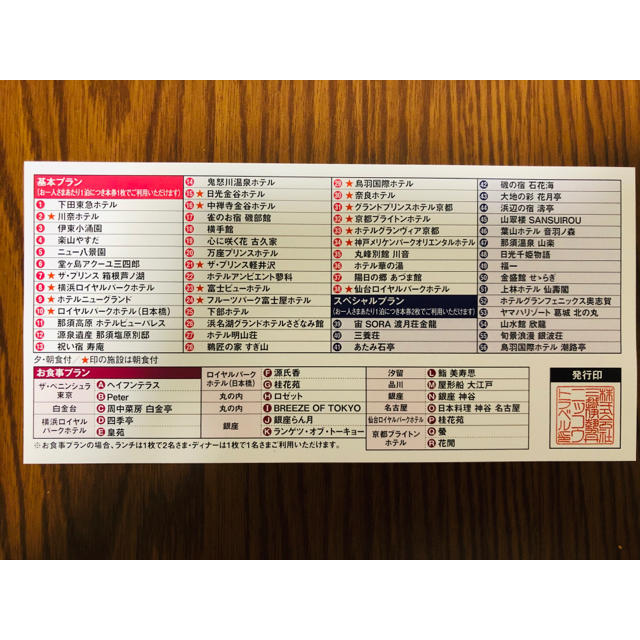 基本プラン
(お一人さまあたり1泊につき本券1枚でご利用いただけます)
1 下田東急ホテル
2 ★川奈ホテル
3 伊東小涌園
4 楽山やすだ
5 ニュー八景園
6 堂ヶ島アクーユ三四郎
7 ★ザ・プリンス 箱根芦ノ湖
8 ★横浜ロイヤルパークホテル
9 ★ホテルニューグランド
10 ★ロイヤルパークホテル(日本橋)
11 那須高原 ホテルビューパレス
12 源泉遺産 那須塩原別邸
13 祝い宿 寿庵
14 鬼怒川温泉ホテル
15 ★日光金谷ホテル
16 ★中禅寺金谷ホテル
17 雀のお宿 磯部館
18 横手館
19 心に咲く花 古久家
20 万座プリンスホテル
21 ★ザ・プリンス軽井沢
22 ホテルアンビエント蓼科
23 ★富士ビューホテル
24 ★フルーツパーク富士屋ホテル
25 下部ホテル
26 浜名湖グランドホテルさざなみ館
27 ホテル明山荘
28 鵜匠の家 すぎ山
29 ★鳥羽国際ホテル
30 ★奈良ホテル
31 ★グランドプリンスホテル京都
32 ★京都ブライトンホテル
33 ★ホテルグランヴィア京都
34 ★神戸メリケンパークオリエンタルホテル
35 丸峰別館 川音
36 ホテル華の湯
37 陽日の郷 あづま館
38 ★仙台ロイヤルパークホテル
スペシャルプラン
(お一人さまあたり1泊につき本券2枚でご利用いただけます)
39 宙 SORA 渡月荘金龍
40 三養荘
41 あたみ石亭
42 磯の宿 石花海
43 大地の彩 花月亭
44 浜辺の宿 濤亭
45 山翠楼 SANSUIROU
46 葉山ホテル 音羽ノ森
47 那須温泉 山楽
48 日光千姫物語
49 福一
50 金盛館 せゝらぎ
51 上林ホテル 仙壽閣
52 ホテルグランフェニックス奥志賀
53 ヤマハリゾート 葛城 北の丸
54 山水館 欣龍
55 旬景浪漫 銀波荘
56 鳥羽国際ホテル 潮路亭
夕・朝食付／★印の施設は朝食付
お食事プラン
ザ・ペニンシュラ東京
A ヘイフンテラス
B Peter
白金台
C 周中菜房 白金亭
横浜ロイヤルパークホテル
D 四季亭
E 皇苑
ロイヤルパークホテル(日本橋)
F 源氏香
G 桂花苑
丸の内
H ロゼット
丸の内
I BREEZE OF TOKYO
銀座
J 銀座らん月
K ランゲツ・オブ・トーキョー
汐留
L 鮨 美寿思
品川
M 屋形船 大江戸
銀座
N 銀座 神谷
名古屋
O 日本料理 神谷 名古屋
仙台ロイヤルパークホテル
P 桂花苑
京都ブライトンホテル
Q 螢
R 花閒
※お食事プランの場合、ランチは1枚で2名さま・ディナーは1枚で1名さまご利用いただけます。
発行印